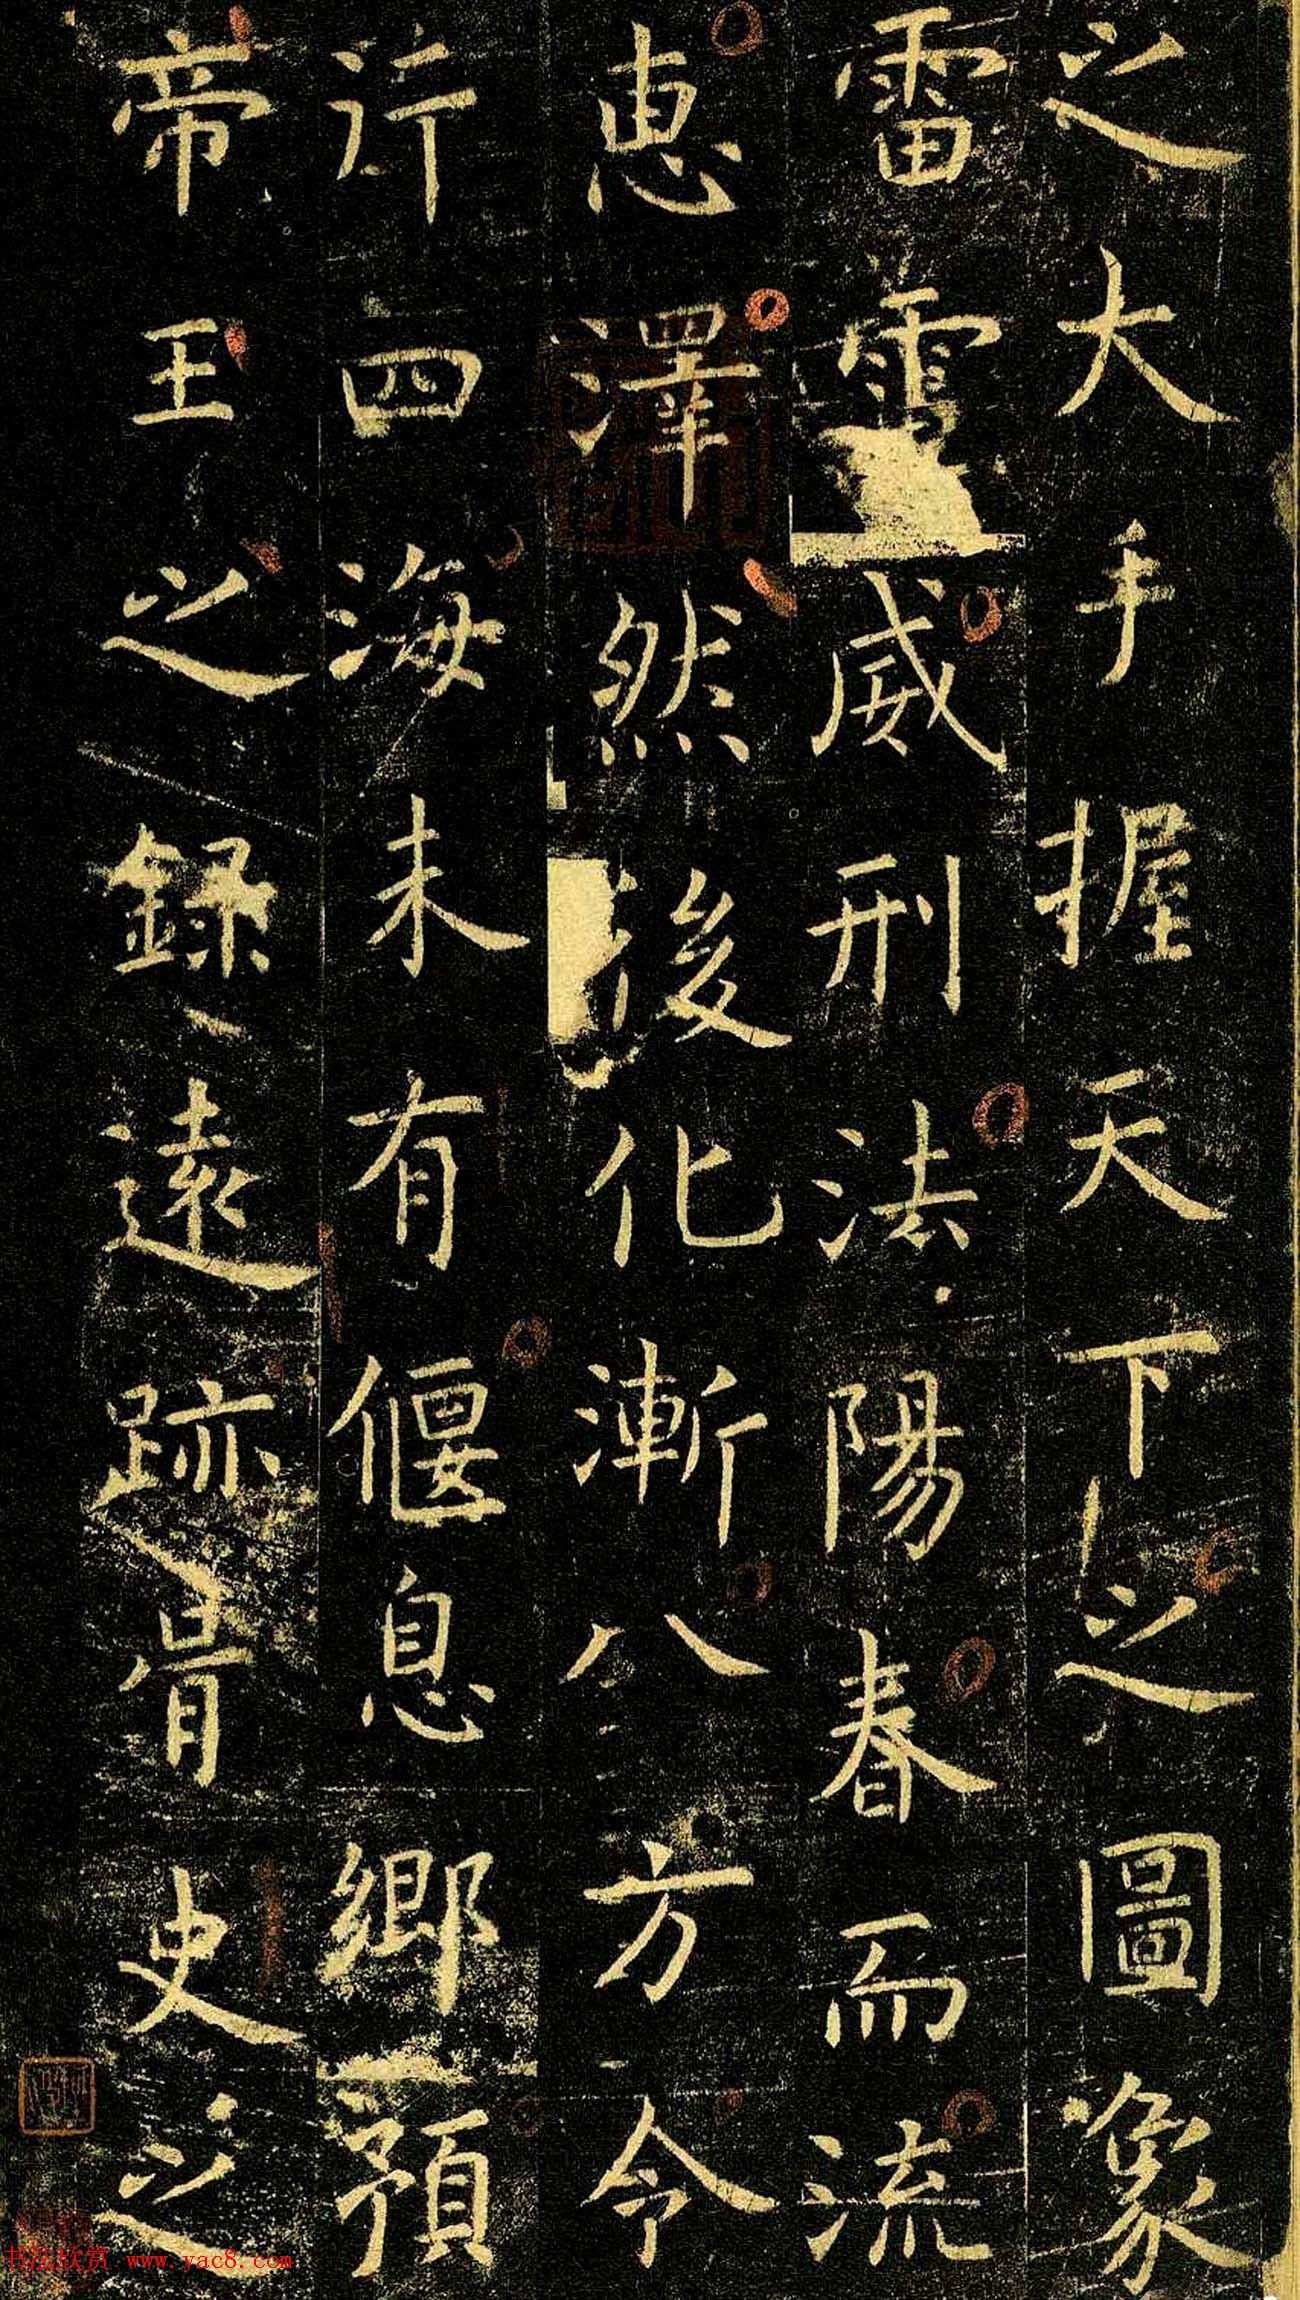 之大手握天下之圖象
雷電威刑法陽春而流
惠澤然後化漸八方令
行四海未有偃息鄉預
帝王之録遠跡胥史之
书法欣赏 www.yac8.com